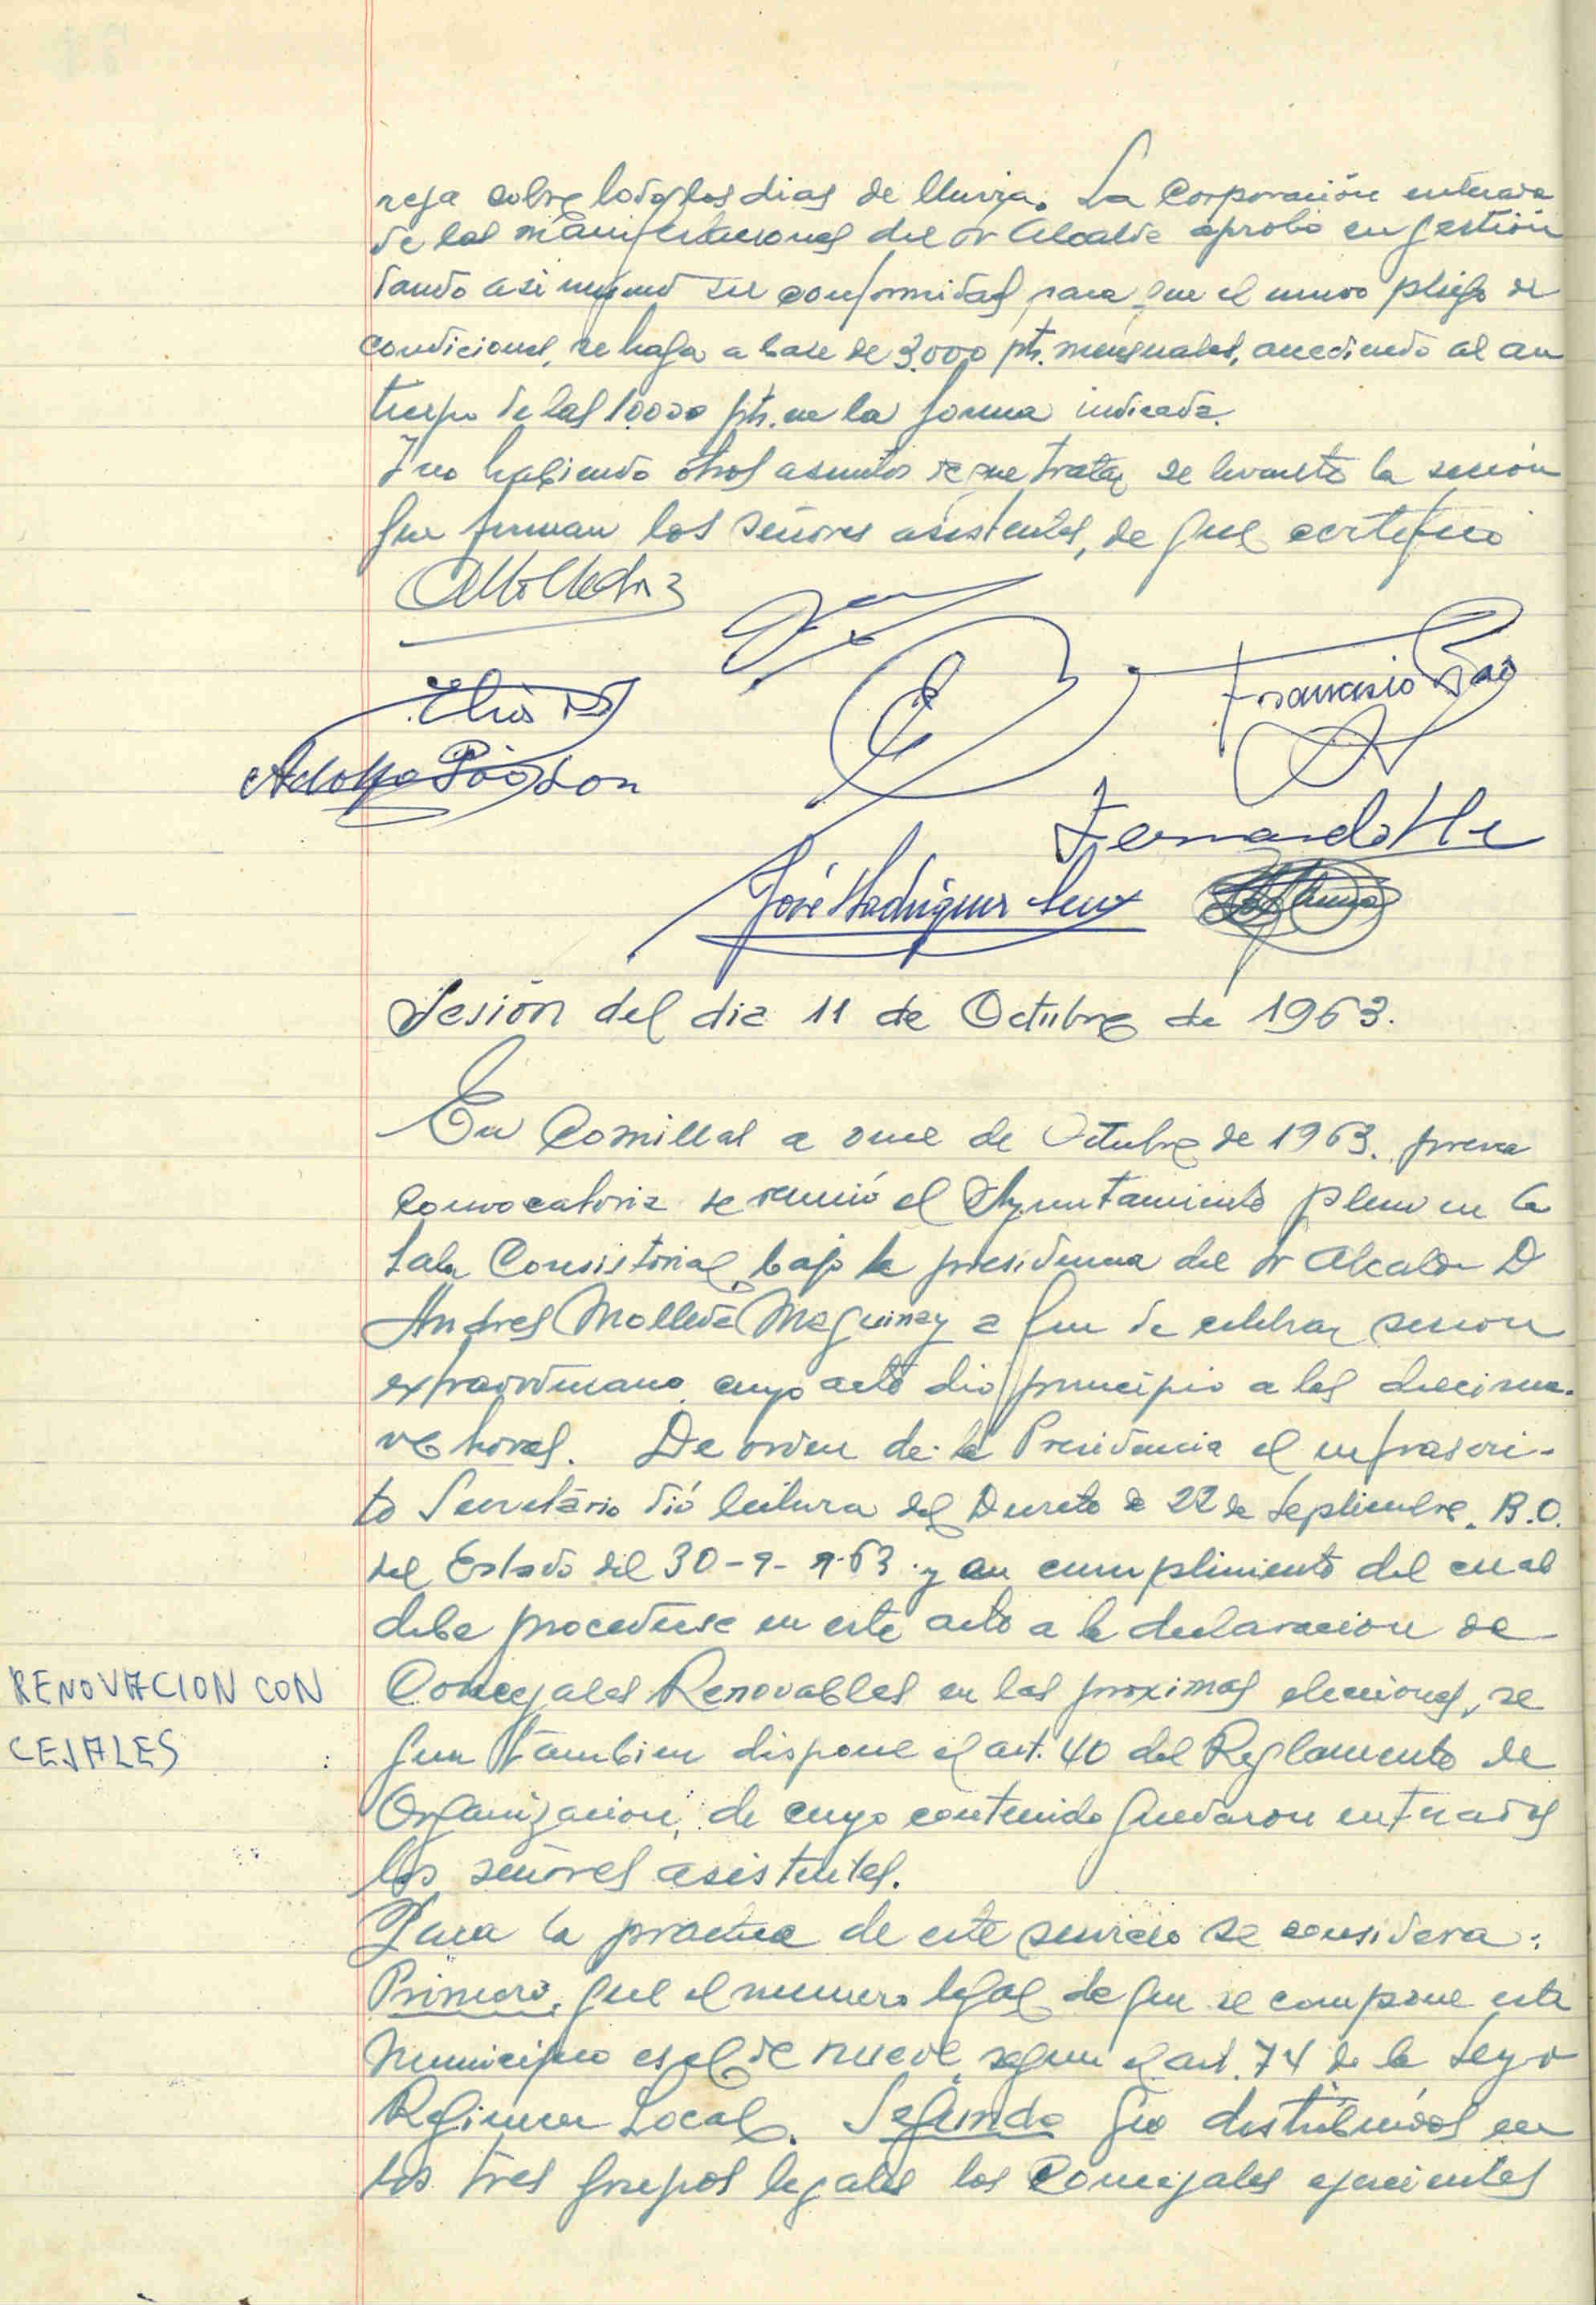 reja sobre todo los dias de lluvia. La Corporación enterada
de las manifestaciones del Sr Alcalde aprobó su gestión
dando asi mismo su conformidad para que el nuevo pliego de
condiciones, se haga a base de 3.000 pts. mensuales, accediendo al an
ticipo de las 10.000 pts. en la forma indicada.
Y no habiendo otros asuntos de que tratar se levantó la sesión
que firman los señores asistentes, de que certifico
Elias
Francisco
Adolfo
Fernando
José
Sesión del dia 11 de Octubre de 1963.
En Comillas a once de Octubre de 1963. previa
convocatoria se reunió el Ayuntamiento pleno en la
Sala Consistorial, bajo la presidencia del Sr Alcalde D
Andres Molleda Meguiney a fin de celebrar sesion
extraordinaria cuyo acto dio principio a las diecinue-
ve horas. De orden de la Presidencia el infrascri-
to Secretario dió lectura del Decreto de 22 de Septiembre. B.O.
del Estado del 30-9-963 y en cumplimiento del cual
debe procederse en este acto a la declaracion de
RENOVACION CON
CEJALES
Concejales Renovables en las proximas elecciones, se
gun tambien dispone el art. 40 del Reglamento de
Organizacion, de cuyo contenido quedaron enterados
los señores asistentes.
Para la practica de este servicio se considera:
Primero, que el numero legal de que se compone este
Municipio es el de nueve segun el art. 74 de la Ley de
Regimen Local. Segundo Que distribuidos en
los tres grupos legales los Concejales ejercientes